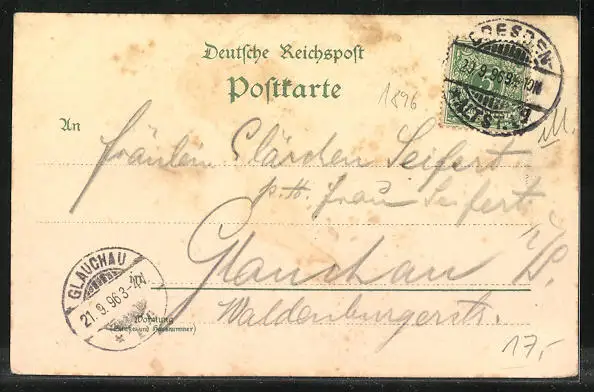 Deutsche Reichspost
Postkarte
DRESDEN
9.96
ALTST.
1896
An
Fräulein Clärchen Seifert
p. A. Frau Seifert
Glauchau i/S.
Waldenburgerstr.
GLAUCHAU
21.9.96 3-
in
Wohnung
(Straße und Hausnummer)
M.
17,-